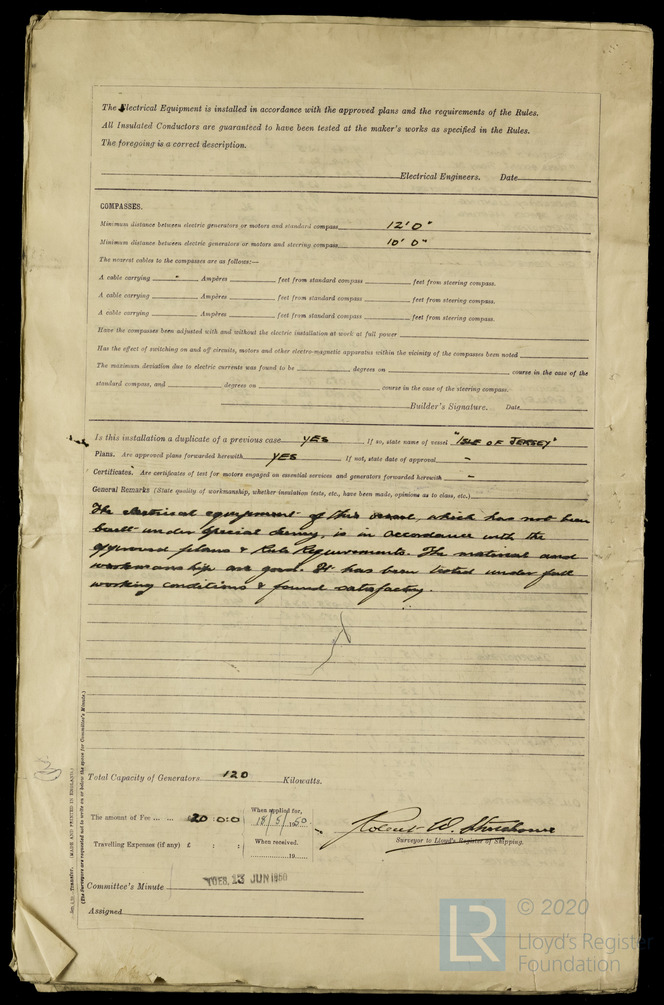 The Electrical Equipment is installed in accordance with the approved plans and the requirements of the Rules.
All Insulated Conductors are guaranteed to have been tested at the maker's works as specified in the Rules.
The foregoing is a correct description.
Electrical Engineers. Date
COMPASSES.
Minimum distance between electric generators or motors and standard compass 12' 0"
Minimum distance between electric generators or motors and steering compass 10' 0"
The nearest cables to the compasses are as follows:—
A cable carrying " Ampères feet from standard compass feet from steering compass.
A cable carrying Ampères feet from standard compass feet from steering compass.
A cable carrying Ampères feet from standard compass feet from steering compass.
Have the compasses been adjusted with and without the electric installation at work at full power
Has the effect of switching on and off circuits, motors and other electro-magnetic apparatus within the vicinity of the compasses been noted
The maximum deviation due to electric currents was found to be degrees on course in the case of the
standard compass, and degrees on course in the case of the steering compass.
Builder's Signature. Date
Is this installation a duplicate of a previous case YES If so, state name of vessel "ISLE OF JERSEY"
Plans. Are approved plans forwarded herewith YES If not, state date of approval -
Certificates. Are certificates of test for motors engaged on essential services and generators forwarded herewith -
General Remarks (State quality of workmanship, whether insulation tests, etc., have been made, opinions as to class, etc.)
The electrical equipment of this vessel, which has not been
built under Special Survey, is in accordance with the
approved plans & Rule Requirements. The material and
workmanship are good. It has been tested under full
working conditions & found satisfactory.
Total Capacity of Generators 120 Kilowatts.
The amount of Fee ... ... 20 : 0 : 0
When applied for,
18/5/1950
Travelling Expenses (if any) £ : :
When received.
19
Robert W.
Surveyor to Lloyd's Register of Shipping.
Committee's Minute TUES. 13 JUN 1950
Assigned
Transfer. (MADE AND PRINTED IN ENGLAND.)
(The Surveyors are requested not to write on or below the space for Committee's Minute.)
LR
© 2020
Lloyd's Register
Foundation